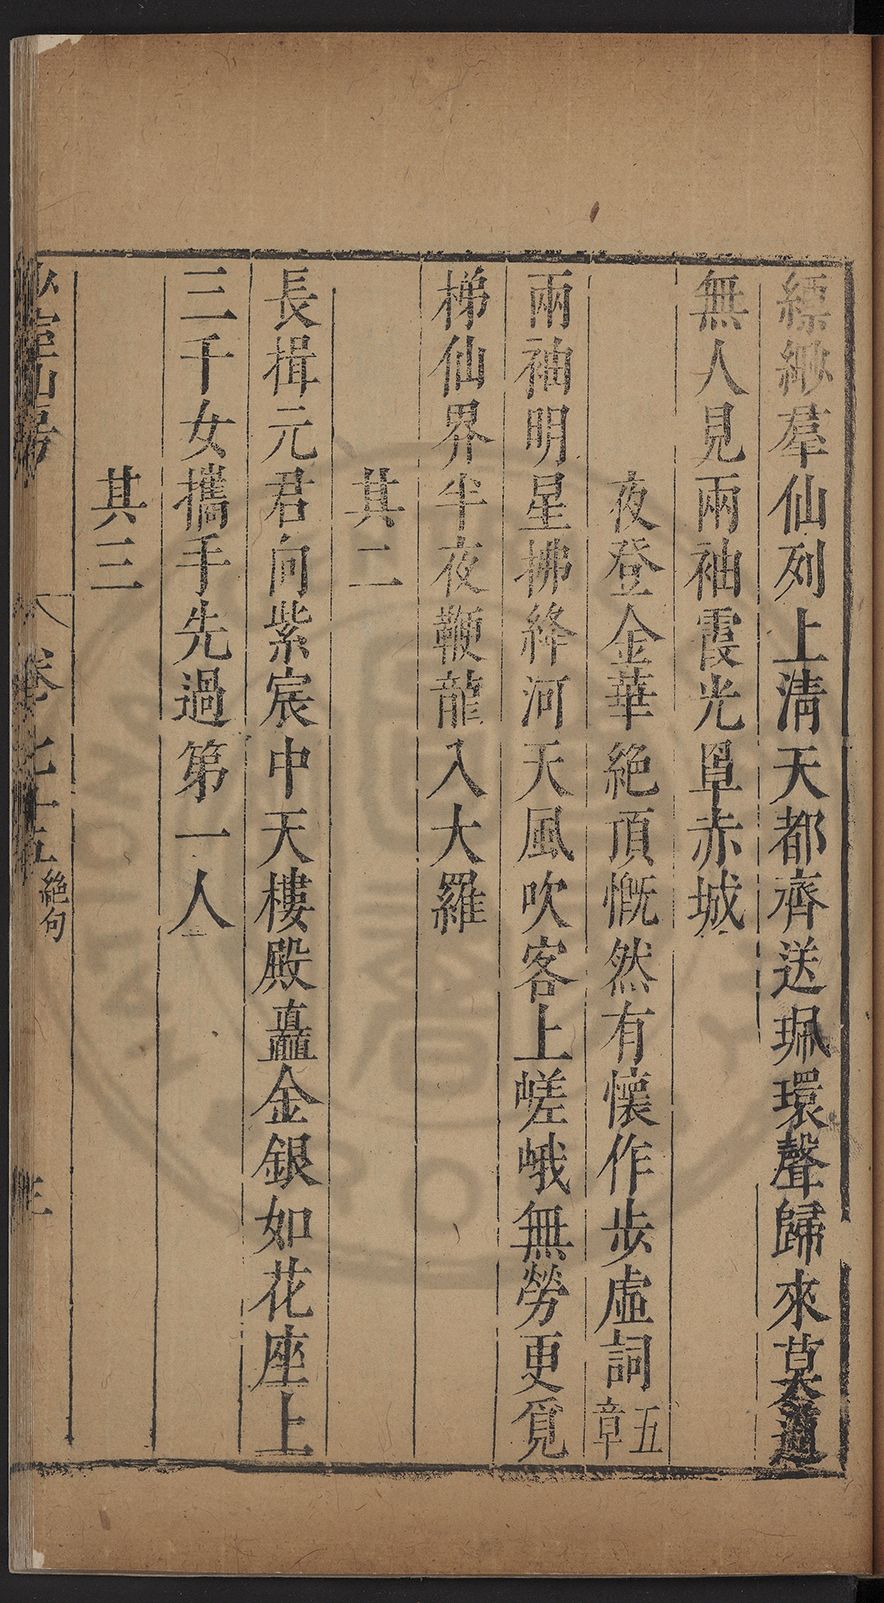 縹緲羣仙列上清天都齊送珮環聲歸來莫道
無人見兩袖霞光罩赤城
夜登金華絕頂慨然有懷作步虛詞五章
兩袖明星拂絳河天風吹客上嵯峨無勞更覓
梯仙界半夜鞭龍入大羅
其二
長揖元君向紫宸中天樓殿矗金銀如花座上
三千女攜手先過第一人
其三
卷七十五 絕句